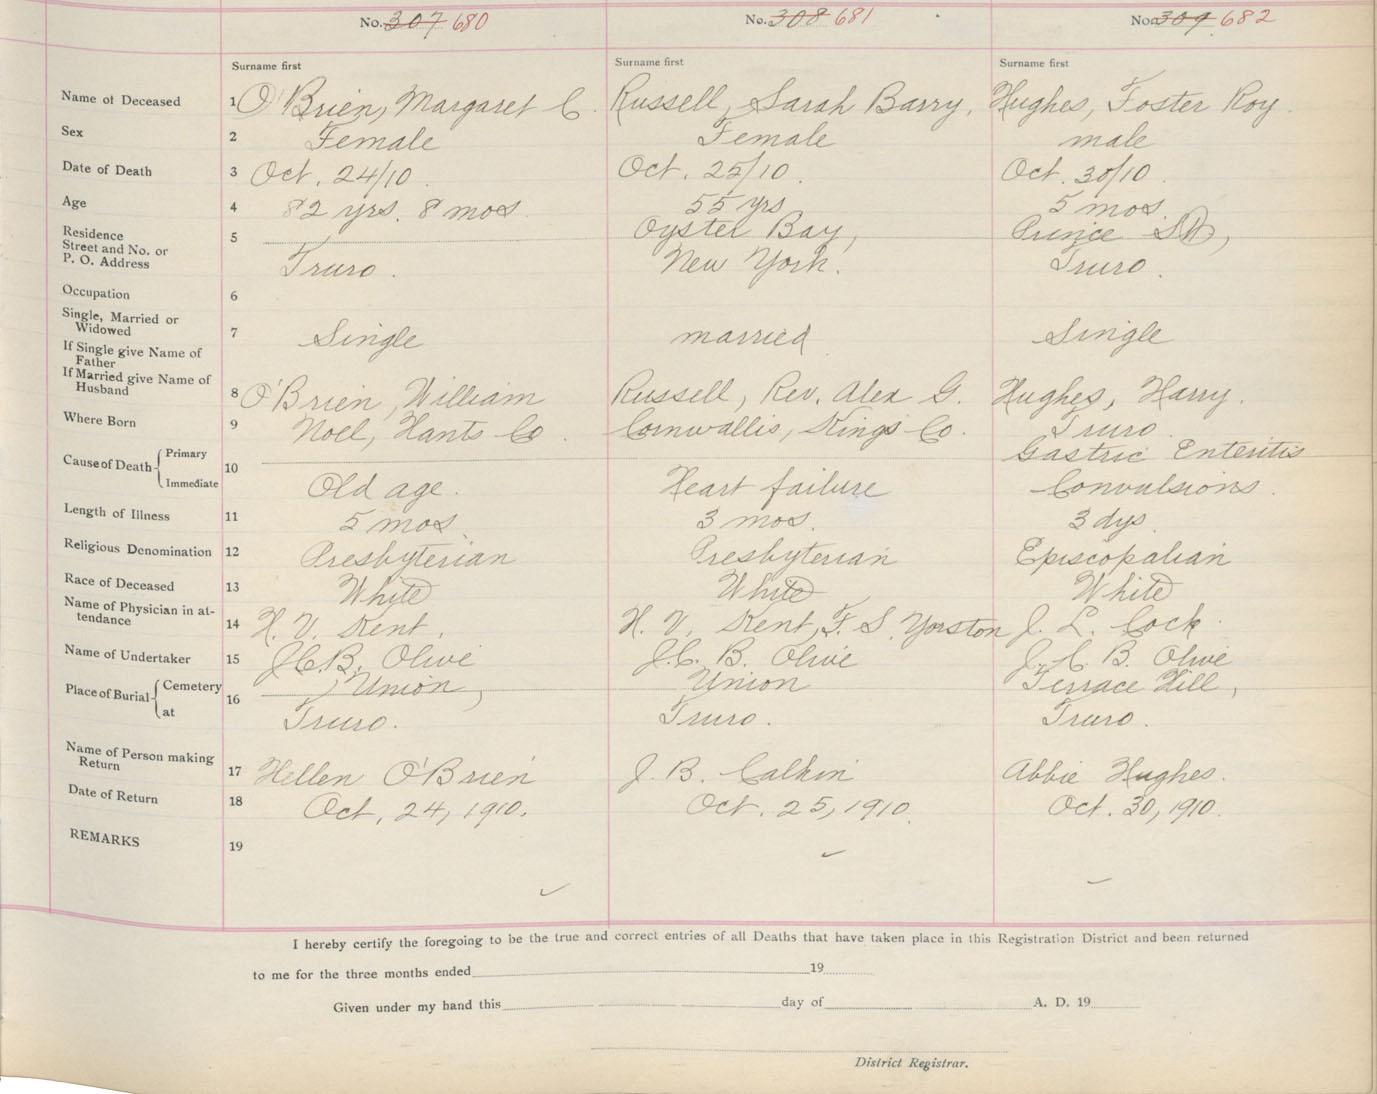 No. 307 680 No. 308 681 No. 309 682
Surname first Surname first Surname first
Name of Deceased 1 O'Brien, Margaret C. Russell, Sarah Barry. Hughes, Foster Roy.
Sex 2 Female Female male
Date of Death 3 Oct. 24/10. Oct. 25/10. Oct. 30/10.
Age 4 82 yrs. 8 mos. 55 yrs 5 mos.
Residence 5 Oyster Bay, Prince St,
Street and No. or
P. O. Address Truro. New York. Truro.
Occupation 6
Single, Married or
Widowed 7 Single married Single
If Single give Name of
Father
If Married give Name of
Husband 8 O'Brien, William Russell, Rev. Alex G. Hughes, Harry.
Where Born 9 Noel, Hants Co. Cornwallis, Kings Co. Truro.
Cause of Death Primary 10 Gastric Enteritis
Immediate Old age. Heart failure Convulsions.
Length of Illness 11 5 mos. 3 mos. 3 dys.
Religious Denomination 12 Presbyterian Presbyterian Episcopalian
Race of Deceased 13 White White White
Name of Physician in at-
tendance 14 H. V. Kent. H. V. Kent, F. S. Yorston J. L. Cock.
Name of Undertaker 15 J.C.B. Olive J.C. B. Olive J. C. B. Olive
Place of Burial Cemetery 16 Union, Union Terrace Hill,
at Truro. Truro. Truro.
Name of Person making
Return 17 Hellen O'Brien J. B. Calkin Abbie Hughes.
Date of Return 18 Oct. 24, 1910. Oct. 25, 1910. Oct. 30, 1910.
REMARKS 19
I hereby certify the foregoing to be the true and correct entries of all Deaths that have taken place in this Registration District and been returned
to me for the three months ended 19
Given under my hand this day of A. D. 19
District Registrar.